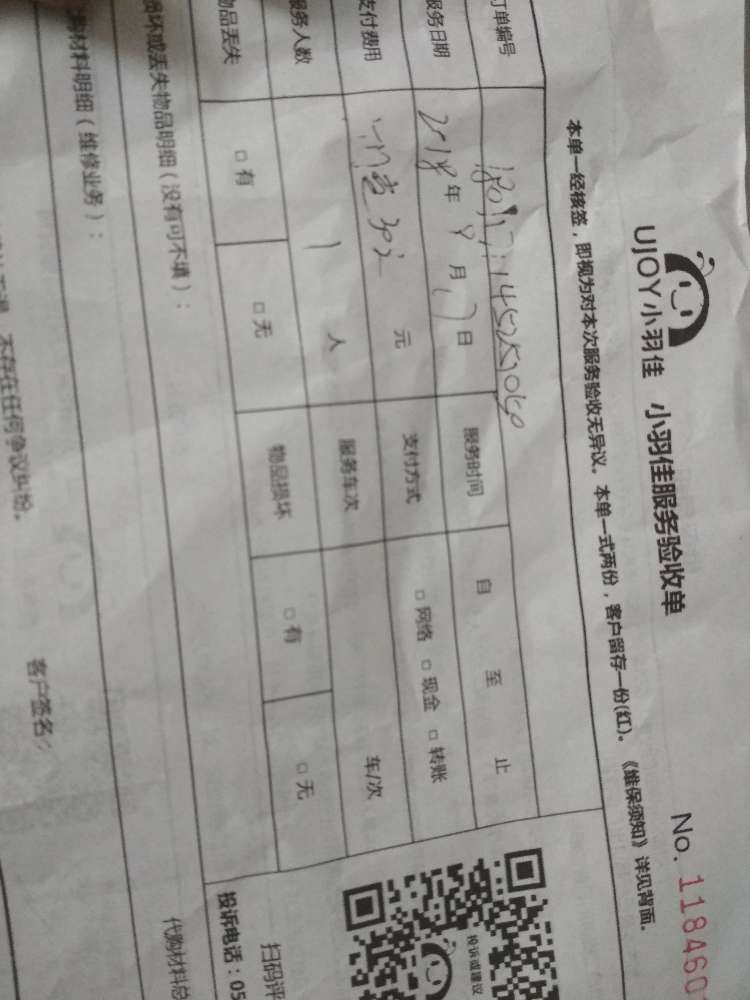 UJOY小羽佳 小羽佳服务验收单
No. 118460
本单一经核签，即视为对本次服务验收无异议。本单一式两份，客户留存一份(红)。《维保须知》详见背面。
订单编号
服务时间 自 至 止
服务日期 2018年9月17日
支付方式 □网络 □现金 □转账
支付费用 元
服务人数 1 人 服务车次 车/次
物品丢失 □有 □无 物品损坏 □有 □无
损坏或丢失物品明细（没有可不填）：
材料明细（维修业务）：
投诉或建议
扫码评
投诉电话：05
代购材料总
不存在任何争议纠纷。
客户签名：